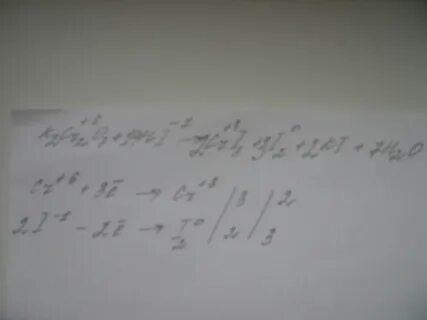 K₂Cr₂⁺⁶O₇ + 14HI⁻¹ → 2Cr⁺³I₃ + 3I₂⁰ + 2KI + 7H₂O
Cr⁺⁶ + 3ē → Cr⁺³ | 3 | 2
2I⁻¹ - 2ē → I₂⁰ | 2 | 3